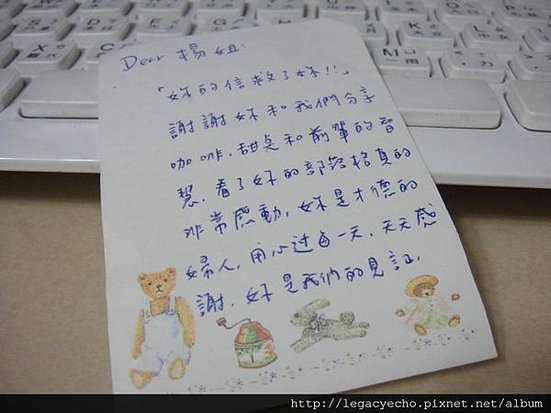 Dear 楊姐:
「妳的信救了妳!!」
謝謝妳和我們分享
咖啡、甜点和前輩的智
慧,看了妳的部落格真的
非常感動,妳是才德的
婦人,用心过每一天,天天感
謝,妳是我們的見証.
http://legacyecho.pixnet.net/album